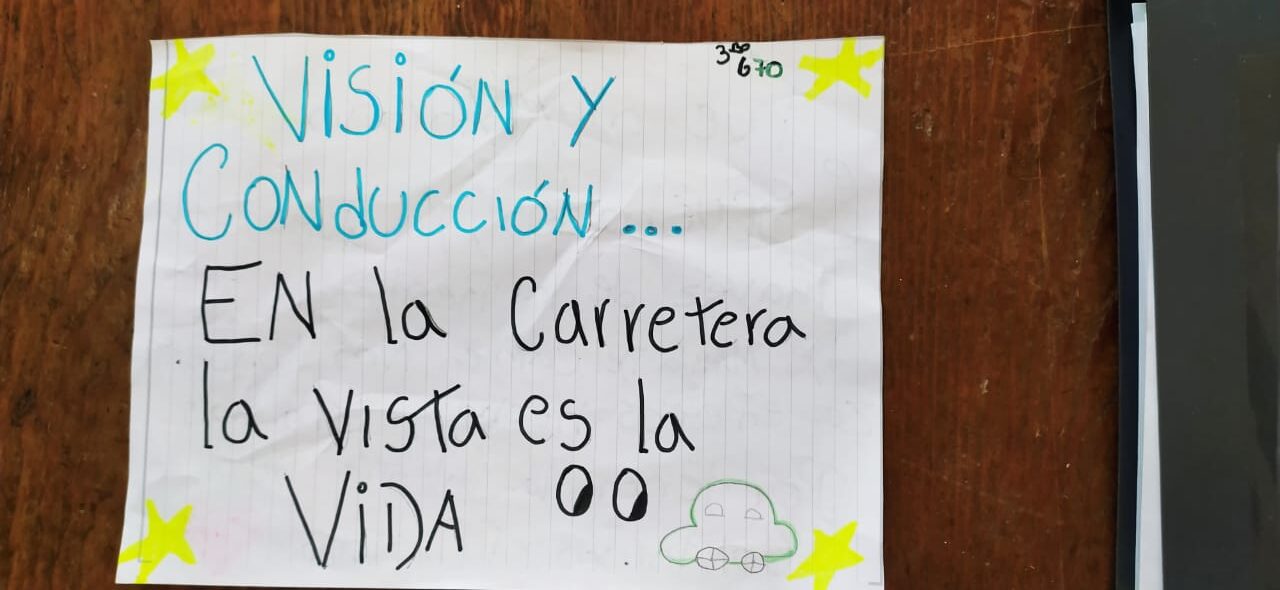 3ro
670
VisióN Y
CONducciÓN...
EN la Carretera
la vista es la
ViDA